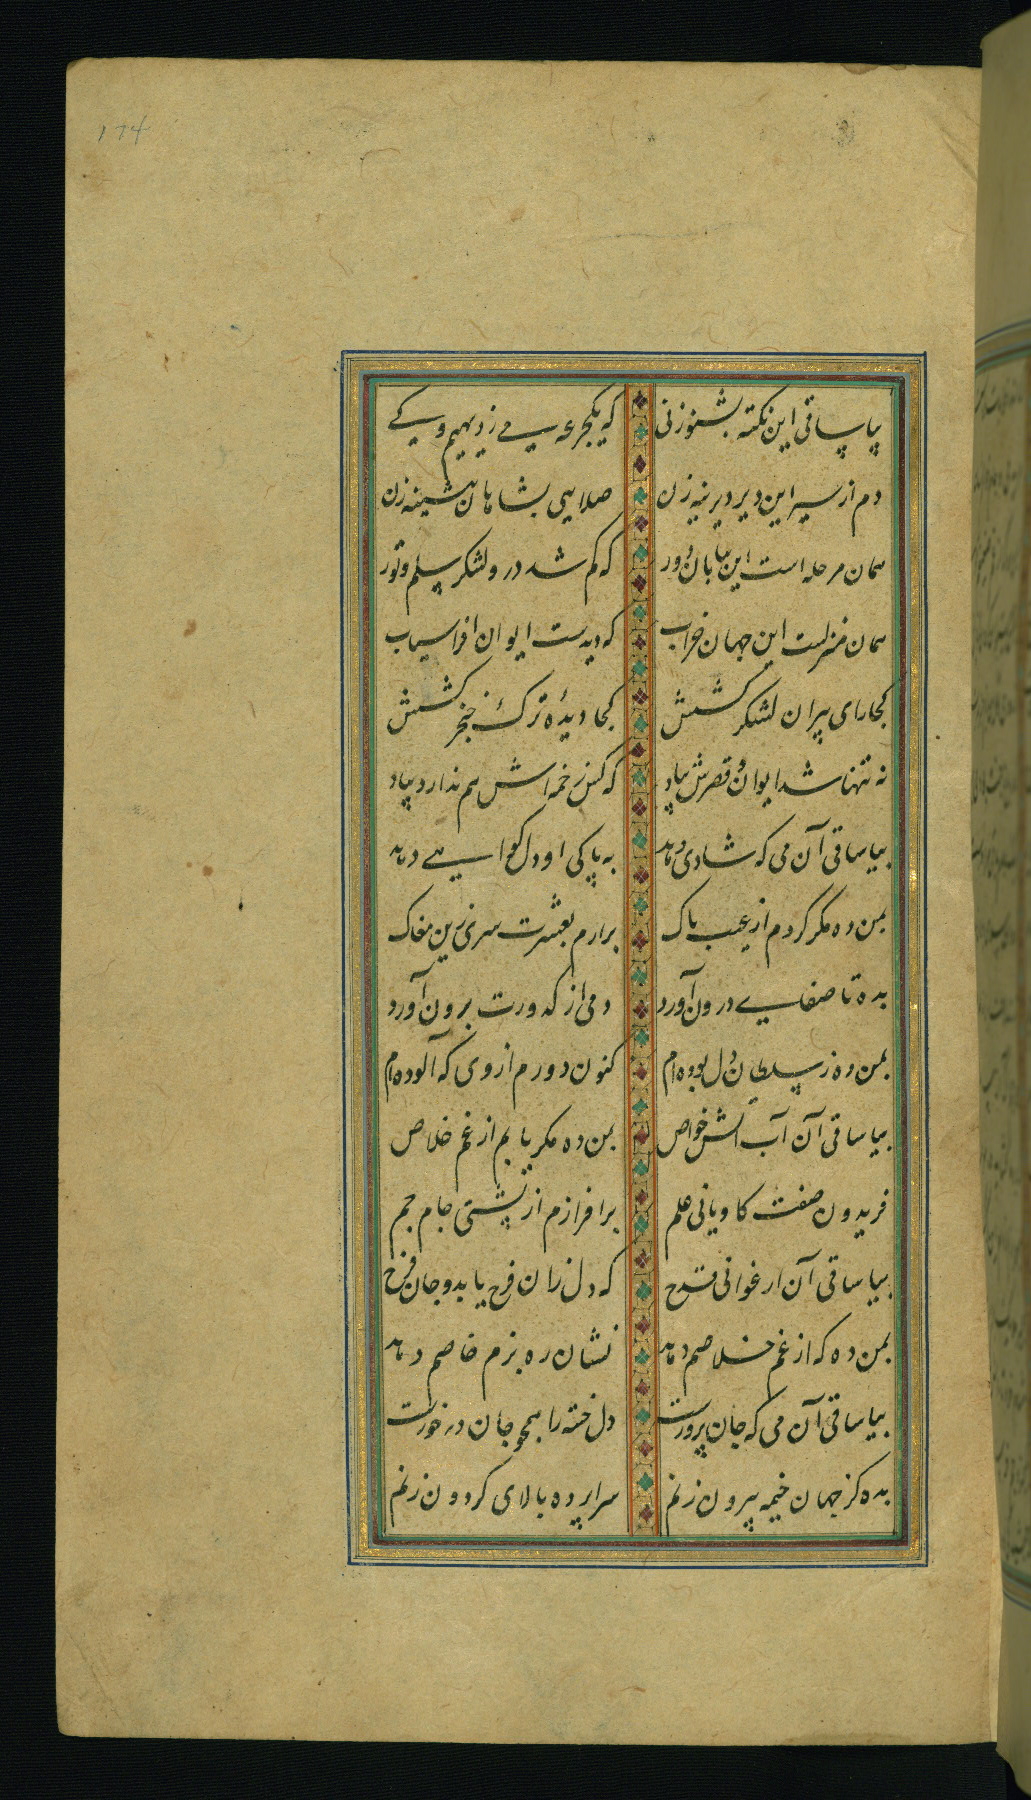 174
بیا ساقی این نکته بشنو ز نی که یکجرعه می ز دیهیم و کی
دم از سیر این دیر دیرینه زن صلایی بشاهان پیشینه زن
همان مرحله است این بیابان دور که گم شد درو لشکر سلم و تور
همان منزلست این جهان خراب که دیدست ایوان افراسیاب
کجا رای پیران لشکر کشش کجا شیده ترک خنجر کشش
نه تنها شد ایوان و قصرش بباد که کس دخمه اش هم ندارد بیاد
بیا ساقی آن می که شادی دهد به پاکی او دل گواهی دهد
بمن ده مگر گردم از عیب پاک برارم بعشرت سری زین مغاک
بده تا صفایی درون آورد دمی از کدورت برون آورد
بمن ده ز سلطان دل بوده ام کنون دورم از وی که آلوده ام
بیا ساقی آن آب آتش خواص بمن ده مگر یابم از غم خلاص
فریدون صفت کاویانی علم برافرازم از پشتی جام جم
بیا ساقی آن ارغوانی قدح که دل زان فرح یابد و جان فرح
بمن ده که از غم خلاصم دهد نشان ره بزم خاصم دهد
بیا ساقی آن می که جان پرورست دل خسته را همچو جان در خورست
بده کز جهان خیمه بیرون زنم سراپرده بالای گردون زنم